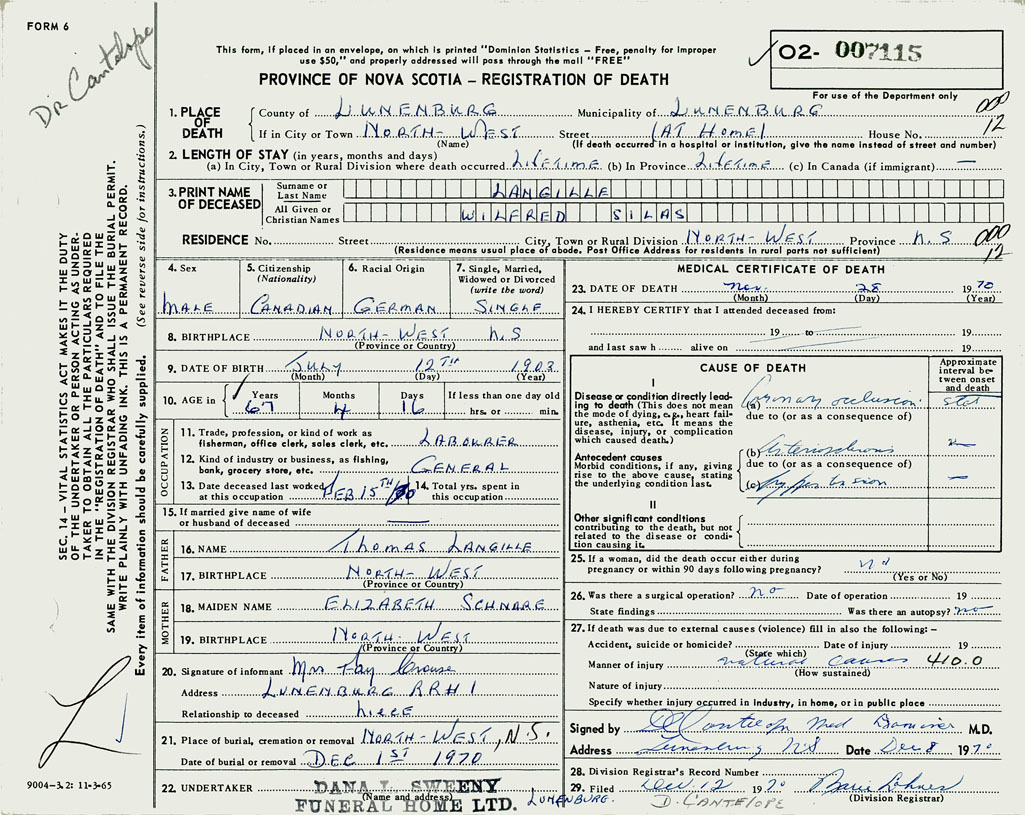 FORM 6
Dr Cantelope
This form, if placed in an envelope, on which is printed "Dominion Statistics – Free, penalty for improper
use $50," and properly addressed will pass through the mail "FREE"
PROVINCE OF NOVA SCOTIA – REGISTRATION OF DEATH
02- 007115
For use of the Department only
1. PLACE OF DEATH
County of LUNENBURG Municipality of LUNENBURG
000
12
If in City or Town NORTH-WEST Street (AT HOME) House No.
(Name) (If death occurred in a hospital or institution, give the name instead of street and number)
2. LENGTH OF STAY (in years, months and days)
(a) In City, Town or Rural Division where death occurred LIFETIME (b) In Province LIFETIME (c) In Canada (if immigrant) —
3. PRINT NAME OF DECEASED
Surname or Last Name LANGILLE
All Given or Christian Names WILFRED SILAS
RESIDENCE No. Street City, Town or Rural Division NORTH-WEST Province N.S
000
12
(Residence means usual place of abode. Post Office Address for residents in rural parts not sufficient)
4. Sex
MALE
5. Citizenship
(Nationality)
CANADIAN
6. Racial Origin
GERMAN
7. Single, Married,
Widowed or Divorced
(write the word)
SINGLE
8. BIRTHPLACE NORTH-WEST N.S
(Province or Country)
9. DATE OF BIRTH JULY 12TH 1903
(Month) (Day) (Year)
10. AGE in Years Months Days If less than one day old
67 4 16 hrs. or min.
OCCUPATION
11. Trade, profession, or kind of work as
fisherman, office clerk, sales clerk, etc. LABOURER
12. Kind of industry or business, as fishing,
bank, grocery store, etc. GENERAL
13. Date deceased last worked
at this occupation FEB 15TH/70
14. Total yrs. spent in
this occupation
15. If married give name of wife
or husband of deceased —
FATHER
16. NAME THOMAS LANGILLE
17. BIRTHPLACE NORTH-WEST
(Province or Country)
MOTHER
18. MAIDEN NAME ELIZABETH SCHNARE
19. BIRTHPLACE NORTH-WEST
(Province or Country)
20. Signature of informant Mrs Fay Crouse
Address LUNENBURG RR#1
Relationship to deceased niece
21. Place of burial, cremation or removal NORTH-WEST, N.S.
Date of burial or removal DEC 1ST 1970
22. UNDERTAKER DANA L. SWEENY
(Name and address)
FUNERAL HOME LTD. LUNENBURG.
MEDICAL CERTIFICATE OF DEATH
23. DATE OF DEATH Nov. 28 1970
(Month) (Day) (Year)
24. I HEREBY CERTIFY that I attended deceased from:
19 to 19
and last saw h alive on 19
CAUSE OF DEATH
Approximate
interval be-
tween onset
and death
I
Disease or condition directly lead-
ing to death (This does not
mean the mode of dying, e.g., heart fail-
ure, asthenia, etc. It means the
disease, injury, or complication
which caused death.)
(a) Coronary occlusion stat
due to (or as a consequence of)
Antecedent causes
Morbid conditions, if any, giving
rise to the above cause, stating
the underlying condition last.
(b) Arteriosclerosis
due to (or as a consequence of)
(c) Hypertension —
II
Other significant conditions
contributing to the death, but not
related to the disease or condi-
tion causing it.
25. If a woman, did the death occur either during
pregnancy or within 90 days following pregnancy?
(Yes or No)
26. Was there a surgical operation? no Date of operation 19
State findings Was there an autopsy? no
27. If death was due to external causes (violence) fill in also the following: –
Accident, suicide or homicide? Date of injury 19
(State which)
Manner of injury natural causes 410.0
(How sustained)
Nature of injury
Specify whether injury occurred in industry, in home, or in public place
Signed by D Cantelope Med Examiner M.D.
Address Lunenburg NS Date Dec 8 1970
28. Division Registrar's Record Number
29. Filed Dec 12 1970
D. CANTELOPE (Division Registrar)
SEC. 14 – VITAL STATISTICS ACT MAKES IT THE DUTY
OF THE UNDERTAKER OR PERSON ACTING AS UNDER-
TAKER TO OBTAIN ALL THE PARTICULARS REQUIRED
IN THE "REGISTRATION OF DEATH" AND TO FILE THE
SAME WITH THE DIVISION REGISTRAR WHO SHALL ISSUE THE BURIAL PERMIT.
WRITE PLAINLY WITH UNFADING INK. THIS IS A PERMANENT RECORD.
Every item of information should be carefully supplied. (See reverse side for instructions.)
9004-3.2: 11-3-65